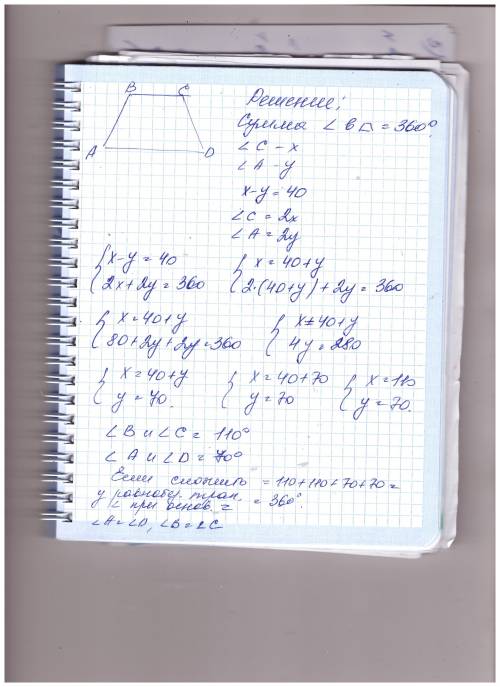 B C
A D
Решение;
Сумма ∠ в ⏢ = 360°
∠C – x
∠A – y
x-y = 40
∠C = 2x
∠A = 2y
{ x-y = 40
2x+2y = 360
{ x = 40+y
2·(40+y)+2y = 360
{ x = 40+y
80+2y+2y=360
{ x = 40+y
4y = 280
{ x = 40+y
y = 70.
{ x = 40+70
y = 70
{ x = 110
y = 70.
∠B и ∠C = 110°
∠A и ∠D = 70°
Если сложить = 110+110+70+70 =
= 360°.
у равнобед. трап.
∠ при основ. =
∠A=∠D, ∠B=∠C